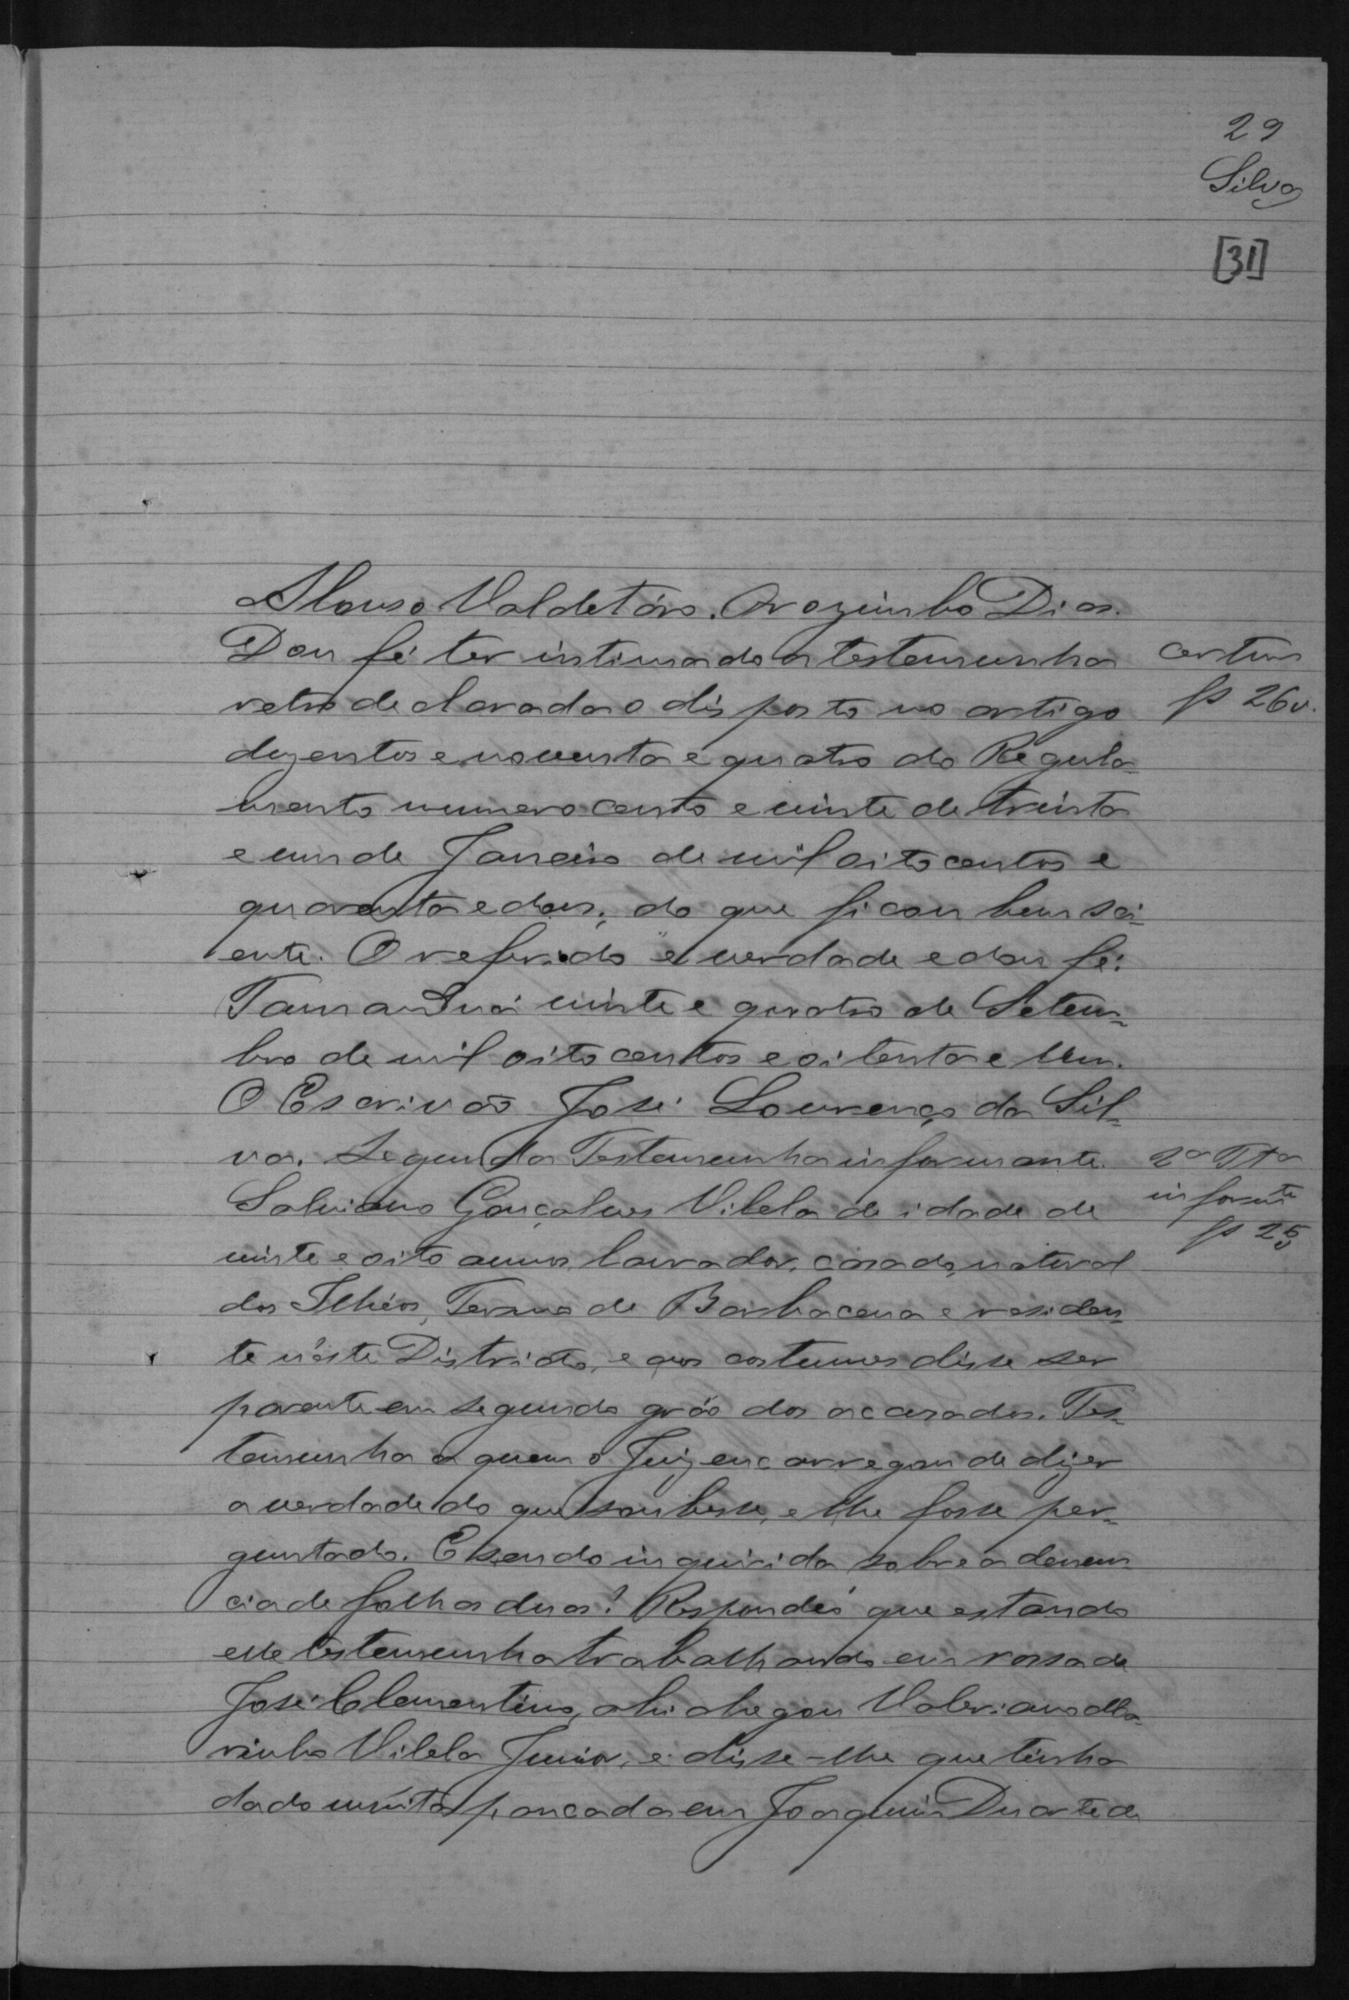 29
Silva
[31]
Afonso Valdetáro. Orozimbo Dias.
Dou fé ter intimado a testemunha
retro declarada o disposto no artigo
duzentos e noventa e quatro do Regula-
mento numero cento e vinte de trinta
e um de Janeiro de mil oitocentos e
quarenta e dous, do que ficou bem sci-
ente. O referido é verdade e dou fé.
Tamanduá vinte e quatro de Setem-
bro de mil oitocentos e oitenta e um.
O Escrivão José Lourenço da Sil-
va. Segunda Testemunha informante.
Salviano Gonçalves Vilela de idade de
vinte e oito annos, lavrador, casado, natural
dos Ilhéos, Termo de Barbacena e residen-
te n'este Districto, e aos costumes disse ser
parente em segundo gráo dos accusados. Tes-
temunha a quem o Juiz encarregou de dizer
a verdade do que soubesse, e lhe fosse per-
guntado. E sendo inquirida sobre a denun-
cia de folhas duas? Respondeo que estando
elle testemunha trabalhando em rossa de
José Clementino, ahi chegou Valeriano Ma-
rinho Vilela Junior, e disse-lhe que tinha
dado muita pancada em Joaquim Duarte de
certam
fs 26v.
2a Tta
informte
fs 25